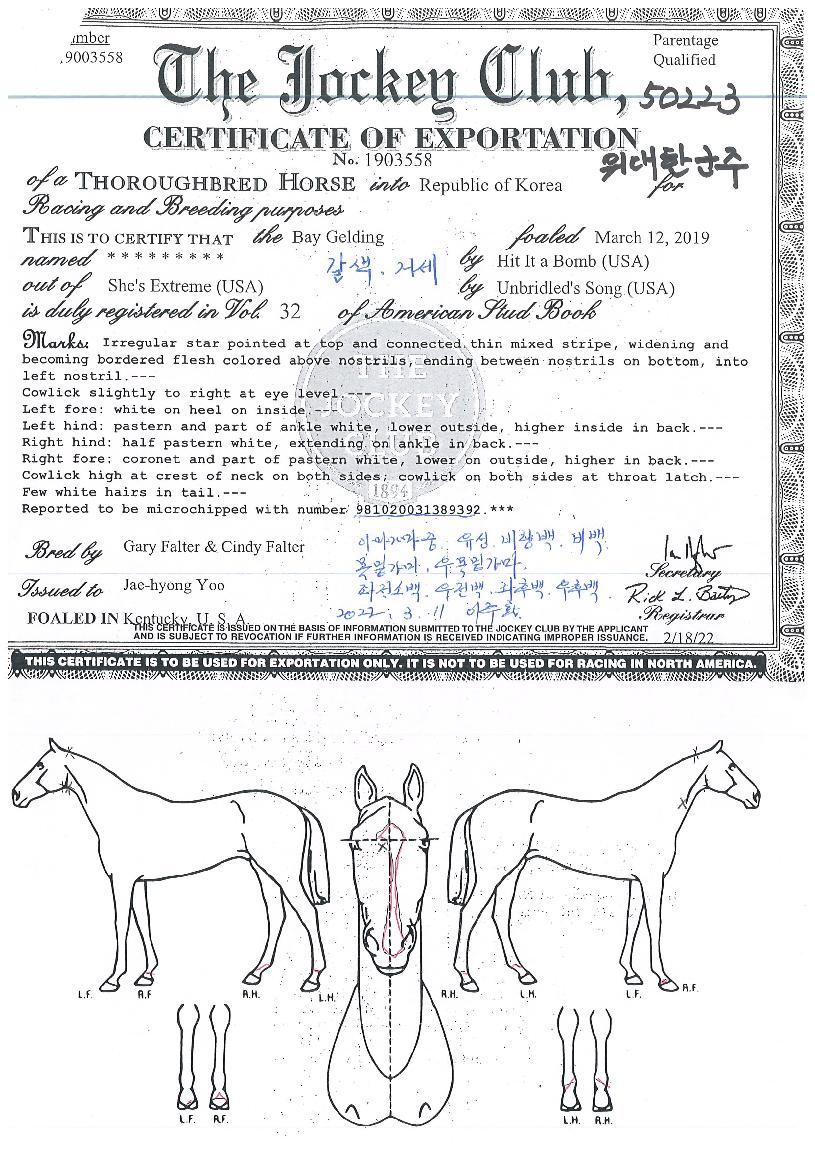 Parentage
,9003558
Qualified
The Jockey Club,
50223
CERTIFICATE OF EXPORTATION
No. 1903558
위대한군주
of a THOROUGHBRED HORSE into Republic of Korea for
Racing and Breeding purposes
THIS IS TO CERTIFY THAT the Bay Gelding foaled March 12, 2019
named * * * * * * * * * 갈색. 거세 by Hit It a Bomb (USA)
out of She's Extreme (USA) by Unbridled's Song (USA)
is duly registered in Vol. 32 of American Stud Book
Marks: Irregular star pointed at top and connected thin mixed stripe, widening and
becoming bordered flesh colored above nostrils, ending between nostrils on bottom, into
left nostril.---
Cowlick slightly to right at eye level.---
Left fore: white on heel on inside.---
Left hind: pastern and part of ankle white, lower outside, higher inside in back.---
Right hind: half pastern white, extending on ankle in back.---
Right fore: coronet and part of pastern white, lower on outside, higher in back.---
Cowlick high at crest of neck on both sides; cowlick on both sides at throat latch.---
Few white hairs in tail.---
Reported to be microchipped with number 981020031389392.***
THE
JOCKEY
CLUB
1894
Bred by Gary Falter & Cindy Falter
유성. 비량백. 비백.
Secretary
Issued to Jae-hyong Yoo
좌전소백. 우전백. 좌후백. 우후백.
Rick L. Bailey
Registrar
FOALED IN Kentucky, U. S. A.
2022. 3. 11
THIS CERTIFICATE IS ISSUED ON THE BASIS OF INFORMATION SUBMITTED TO THE JOCKEY CLUB BY THE APPLICANT
AND IS SUBJECT TO REVOCATION IF FURTHER INFORMATION IS RECEIVED INDICATING IMPROPER ISSUANCE.
2/18/22
THIS CERTIFICATE IS TO BE USED FOR EXPORTATION ONLY. IT IS NOT TO BE USED FOR RACING IN NORTH AMERICA.
L.F. R.F R.H. L.H. R.H. L.H. L.F. R.F.
L.F. R.F. L.H. R.H.